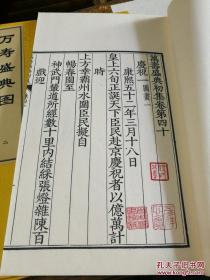 萬壽盛典初集卷第四十
慶祝一 圖畫一
康熙五十二年三月十八日
皇上六旬正誕天下臣民赴京慶祝者以億萬計
時
上方幸霸州水圍臣民擬自
暢春園至
神武門輦道所經數十里內結綵張燈雜陳百
戲迎
万寿盛典图